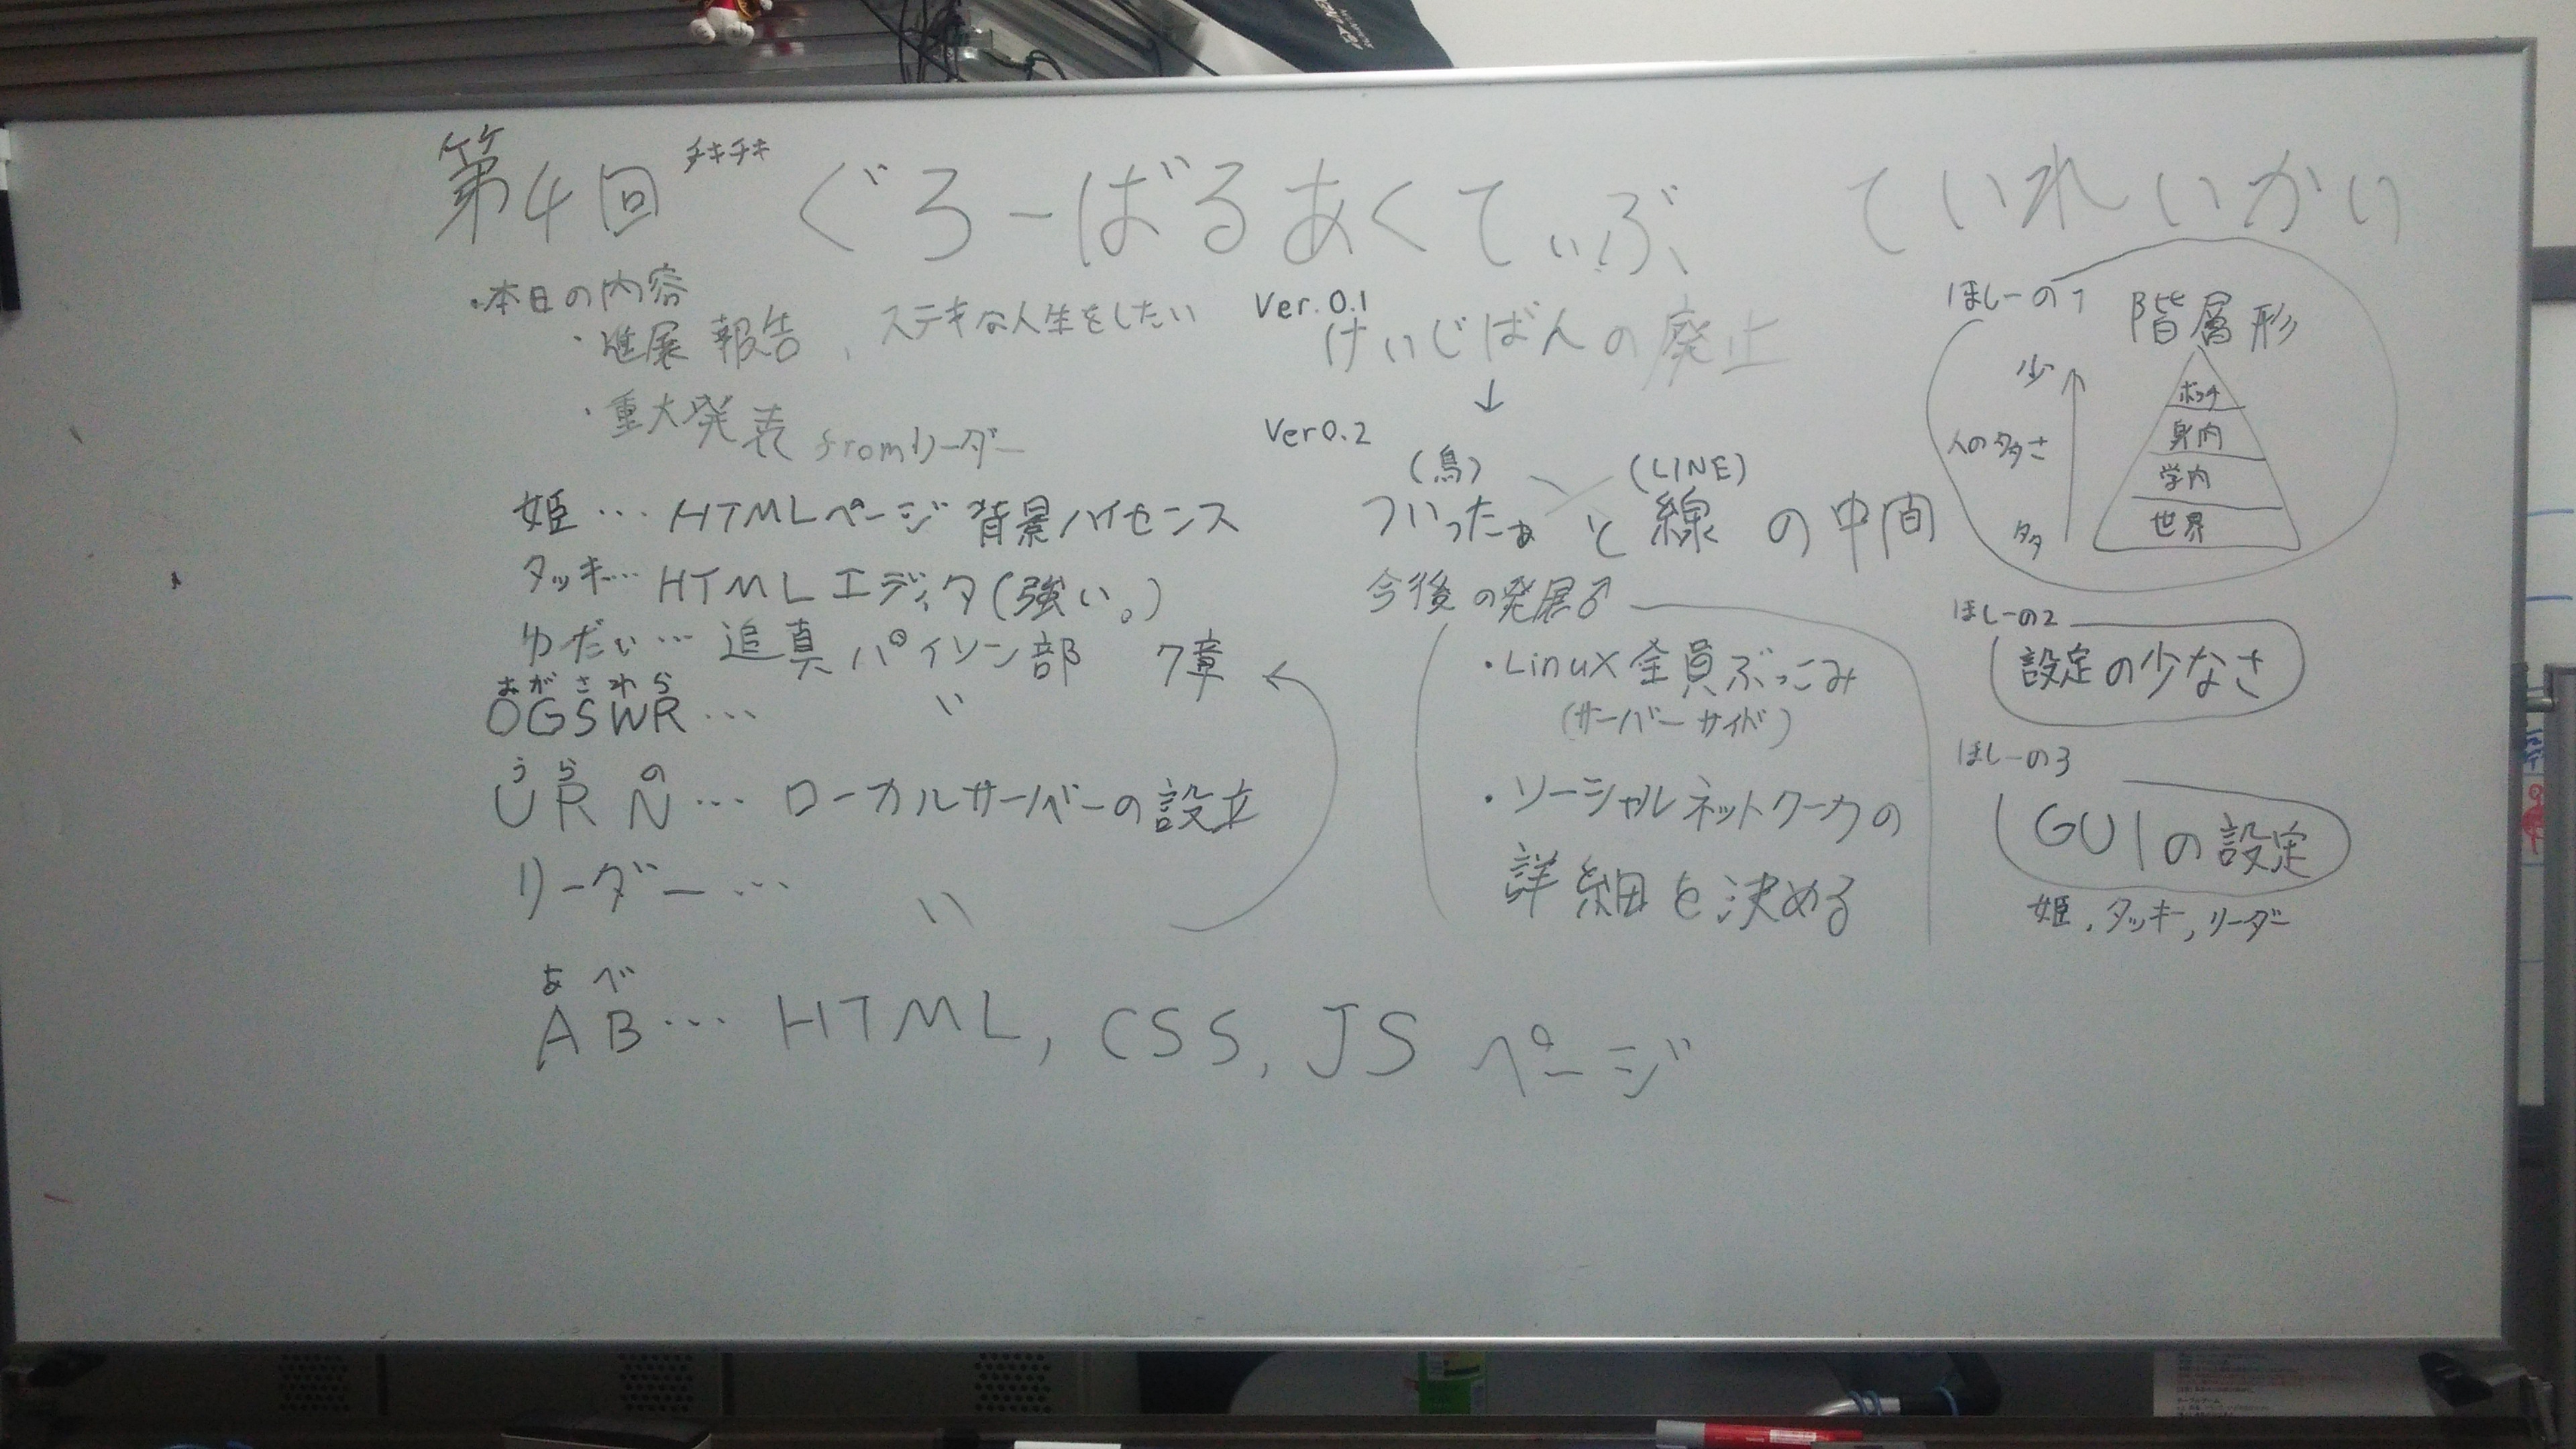 第4回 チキチキ ぐろーばるあくてぃぶ ていれいかい
・本日の内容
・進展報告、ステキな人生をしたい
・重大発表 fromリーダー
姫… HTMLページ 背景ハイセンス
タッキー… HTMLエディタ(強い。)
ゆだい… 追真パイソン部 7章
おがさわら
OGSWR… 〃
うらの
URN… ローカルサーバーの設立
リーダー… 〃
あべ
AB… HTML, CSS, JS ページ
Ver.0.1
けいじばんの廃止
↓
Ver0.2
(鳥) (LINE)
ついったぁ と 線 の中間
今後の発展♂
・Linux全員ぶっこみ
(サーバーサイド)
・ソーシャルネットワークの
詳細を決める
ほしーの1
階層形
少
人の多さ
多
ボッチ
身内
学内
世界
ほしーの2
設定の少なさ
ほしーの3
GUIの設定
姫, タッキー, リーダー